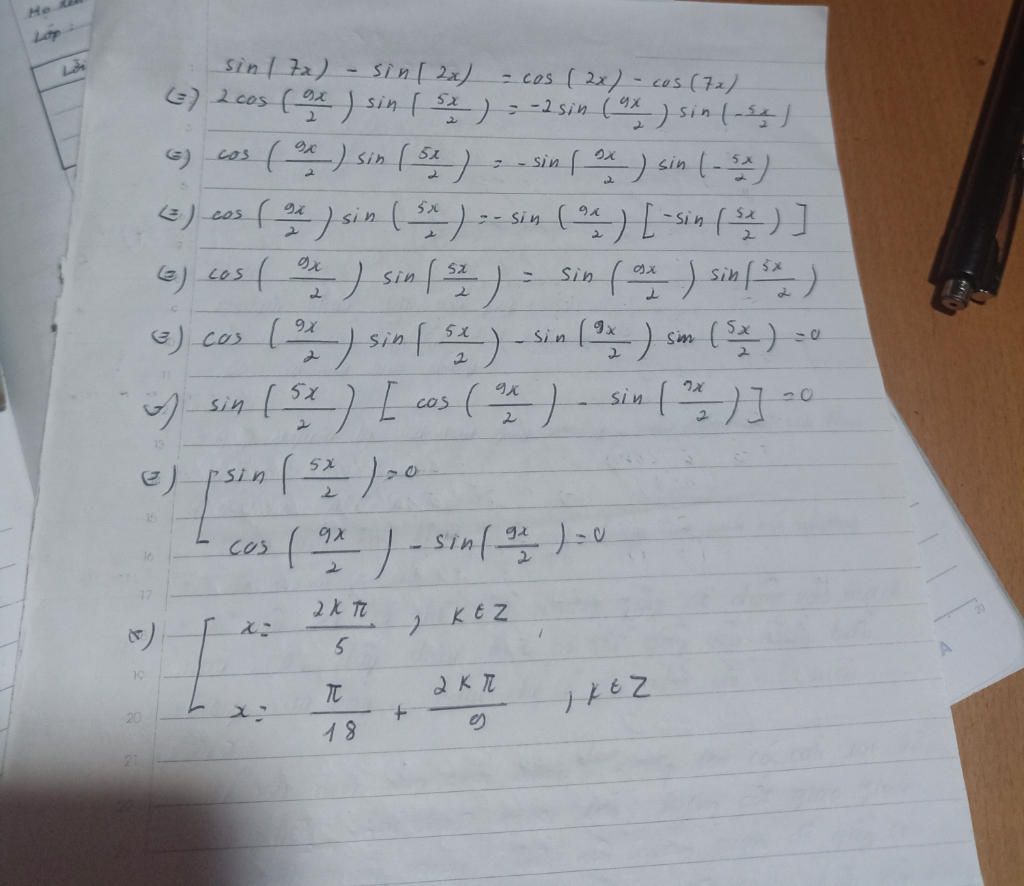 Lớp
sin(7x) - sin(2x) = cos(2x) - cos(7x)
(=) 2cos(9x/2) sin(5x/2) = -2sin(9x/2) sin(-5x/2)
(=) cos(9x/2) sin(5x/2) = -sin(9x/2) sin(-5x/2)
(=) cos(9x/2) sin(5x/2) = -sin(9x/2) [-sin(5x/2)]
(=) cos(9x/2) sin(5x/2) = sin(9x/2) sin(5x/2)
(=) cos(9x/2) sin(5x/2) - sin(9x/2) sin(5x/2) = 0
(=) sin(5x/2) [cos(9x/2) - sin(9x/2)] = 0
(=) [ sin(5x/2) = 0
cos(9x/2) - sin(9x/2) = 0
(=) [ x = 2kπ/5, k ∈ Z
x = π/18 + 2kπ/9, k ∈ Z